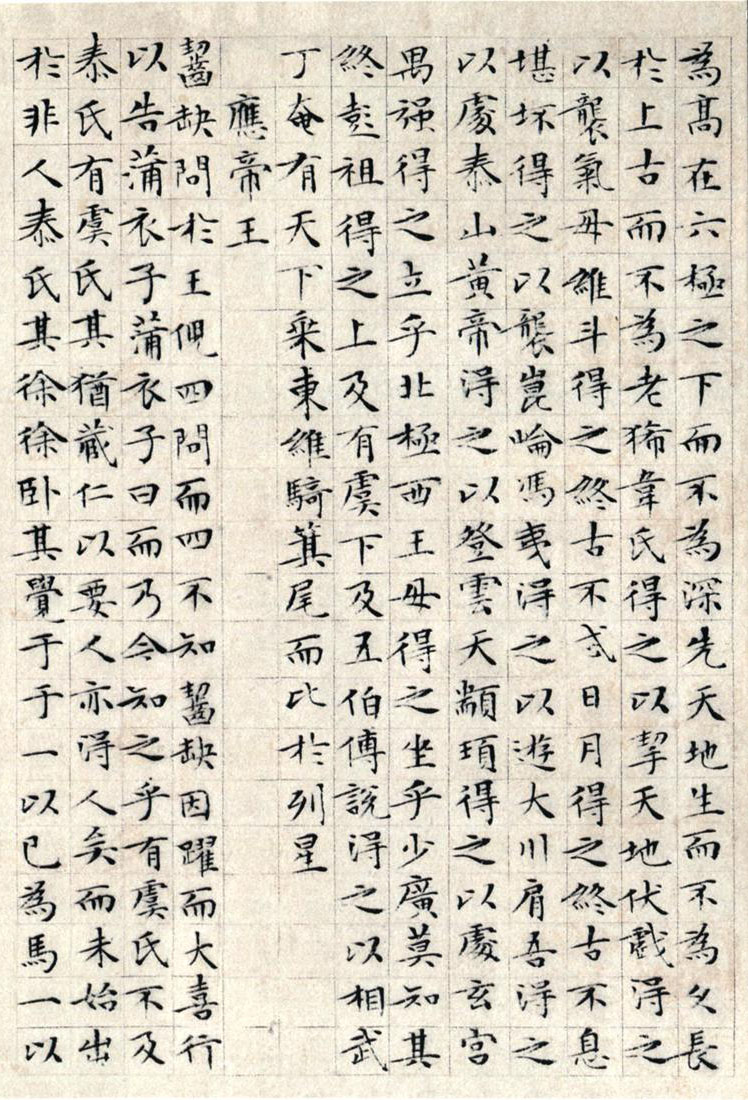 為高在六極之下而不為深先天地生而不為久長
於上古而不為老狶韋氏得之以挈天地伏戲得之
以襲氣母維斗得之終古不忒日月得之終古不息
堪坏得之以襲崑崘馮夷得之以遊大川肩吾得之
以處泰山黃帝得之以登雲天顓頊得之以處玄宮
禺强得之立乎北極西王母得之坐乎少廣莫知其
終彭祖得之上及有虞下及五伯傅說得之以相武
丁奄有天下乘東維騎箕尾而比於列星
應帝王
齧缺問於王倪四問而四不知齧缺因躍而大喜行
以告蒲衣子蒲衣子曰而乃今知之乎有虞氏不及
泰氏有虞氏其猶藏仁以要人亦得人矣而未始出
於非人泰氏其徐徐卧其覺于于一以己為馬一以